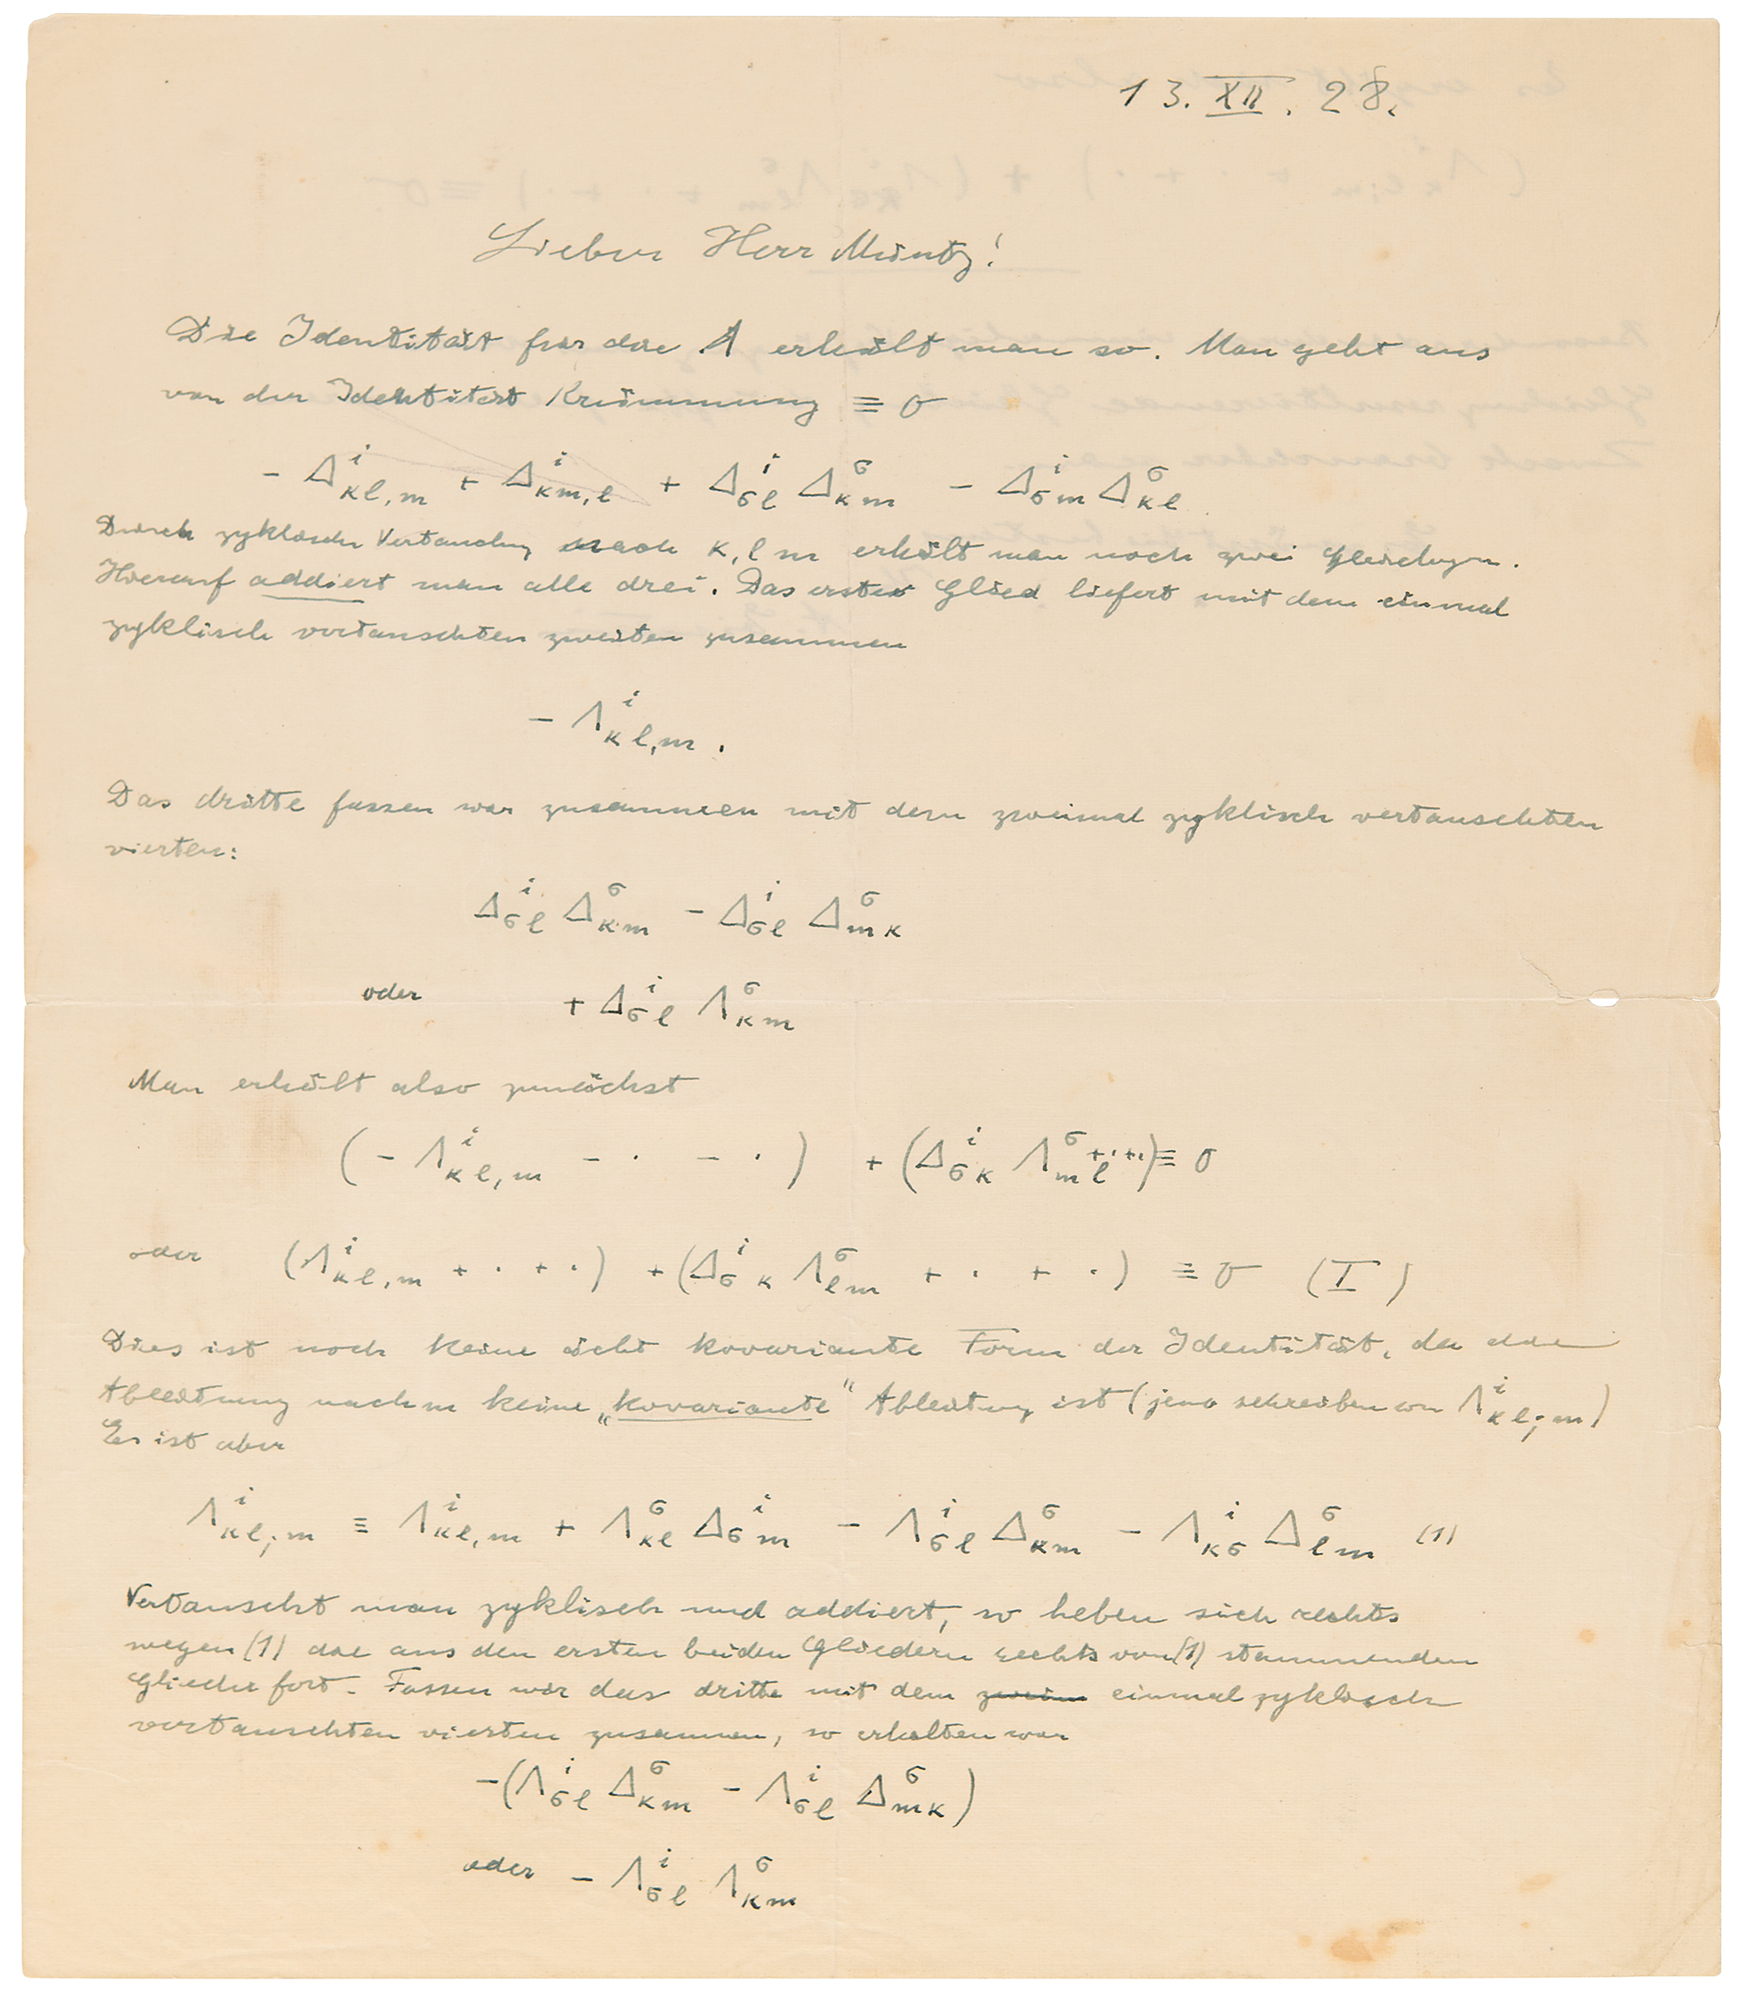 13. XII. 28.
Lieber Herr Müntz!
Die Identität für die Λ erhält man so. Man geht aus
von der Identität Krümmung ≡ 0
- Δ^i_{κl,m} + Δ^i_{κm,l} + Δ^i_{σl} Δ^σ_{κm} - Δ^i_{σm} Δ^σ_{κl}
Durch zyklische Vertauschung nach κ, l m erhält man noch zwei Gleichungen.
Hierauf addiert man alle drei. Das erste Glied liefert mit dem einmal
zyklisch vertauschten zweiten zusammen
- Λ^i_{κl,m}.
Das dritte fassen wir zusammen mit dem zweimal zyklisch vertauschten
vierten:
Δ^i_{σl} Δ^σ_{κm} - Δ^i_{σl} Δ^σ_{mκ}
oder + Δ^i_{σl} Λ^σ_{κm}
Man erhält also zunächst
(- Λ^i_{κl,m} - · - ·) + (Δ^i_{σκ} Λ^σ_{ml} + · + ·) ≡ 0
oder (Λ^i_{κl,m} + · + ·) + (Δ^i_{σκ} Λ^σ_{lm} + · + ·) ≡ 0 (I)
Dies ist noch keine echt kovariante Form der Identität, da die
Ableitung nach m keine „kovariante" Ableitung ist (jene schreiben wir Λ^i_{κl;m})
Es ist aber
Λ^i_{κl;m} ≡ Λ^i_{κl,m} + Λ^σ_{κl} Δ^i_{σm} - Λ^i_{σl} Δ^σ_{κm} - Λ^i_{κσ} Δ^σ_{lm} (1)
Vertauscht man zyklisch und addiert, so heben sich rechts
wegen (1) die aus den ersten beiden Gliedern rechts von (1) stammenden
Glieder fort. Fassen wir das dritte mit dem einmal zyklisch
vertauschten vierten zusammen, so erhalten wir
-(Λ^i_{σl} Δ^σ_{κm} - Λ^i_{σl} Δ^σ_{mκ})
oder - Λ^i_{σl} Λ^σ_{κm}